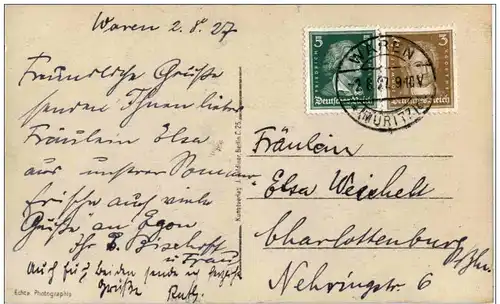 Waren 2.8.27
Freundliche Grüße
senden Ihnen liebes
Fräulein Elsa
aus unserer Sommer
frische auch viele
Grüße an Egon
Ihr
u Frau
Auch
Grüße
Echte Photographie
Kunstverlag Berlin C.25
5
3
Deutsches Reich
Deutsches Reich
WAREN
2.8.27. 9-10 V
(MÜRITZ)
Fräulein
Elsa Weichelt
Charlottenburg
Nehringstr. 6